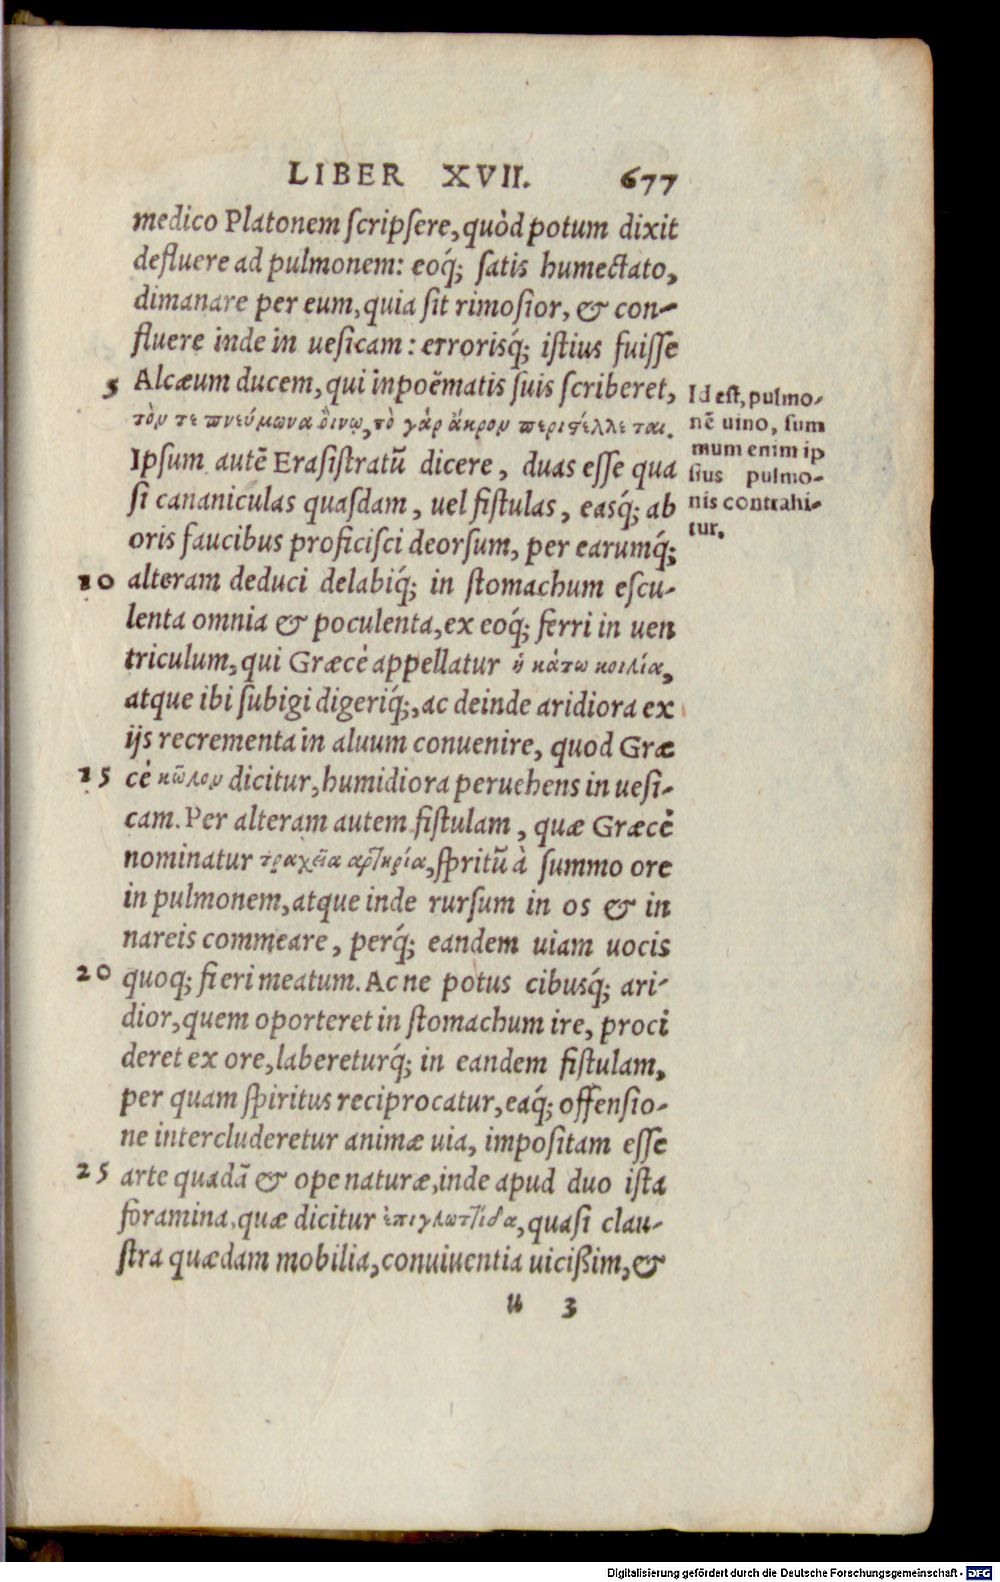 LIBER XVII. 677
medico Platonem ſcripſere, quòd potum dixit
defluere ad pulmonem: eoq́; ſatis humectato,
dimanare per eum, quia ſit rimoſior, & con-
fluere inde in ueſicam: errorisq́; iſtius fuiſſe
5 Alcæum ducem, qui in poëmatis ſuis ſcriberet,
τὸν τε πνεύμωνα ὄινῳ, τὸ γὰρ ἄκρον περιστέλλεται.
Ipſum autē Eraſiſtratū dicere, duas eſſe qua
ſi cananiculas quaſdam, uel fiſtulas, easq́; ab
oris faucibus proficiſci deorſum, per earumq́;
10 alteram deduci delabiq́; in ſtomachum eſcu-
lenta omnia & poculenta, ex eoq́; ferri in uen
triculum, qui Græcè appellatur ἡ κάτω κοιλία,
atque ibi ſubigi digeriq́;, ac deinde aridiora ex
ijs recrementa in aluum conuenire, quod Græ
15 cè κῶλον dicitur, humidiora peruehens in ueſi-
cam. Per alteram autem fiſtulam, quæ Græcè
nominatur τραχεῖα αρτηρία, ſpritū à ſummo ore
in pulmonem, atque inde rurſum in os & in
nareis commeare, perq́; eandem uiam uocis
20 quoq; fieri meatum. Ac ne potus cibusq́; ari-
dior, quem oporteret in ſtomachum ire, proci
deret ex ore, labereturq́; in eandem fiſtulam,
per quam ſpiritus reciprocatur, eaq́; offenſio-
ne intercluderetur animæ uia, impoſitam eſſe
25 arte quadā & ope naturæ, inde apud duo iſta
foramina, quæ dicitur ἐπιγλωττίδα, quaſi clau-
ſtra quædam mobilia, conuiuentia uicißim, &
u 3
Id eſt, pulmo-
nē uino, ſum
mum enim ip
ſius pulmo-
nis contrahi-
tur.
Digitalisierung gefördert durch die Deutsche Forschungsgemeinschaft - DFG